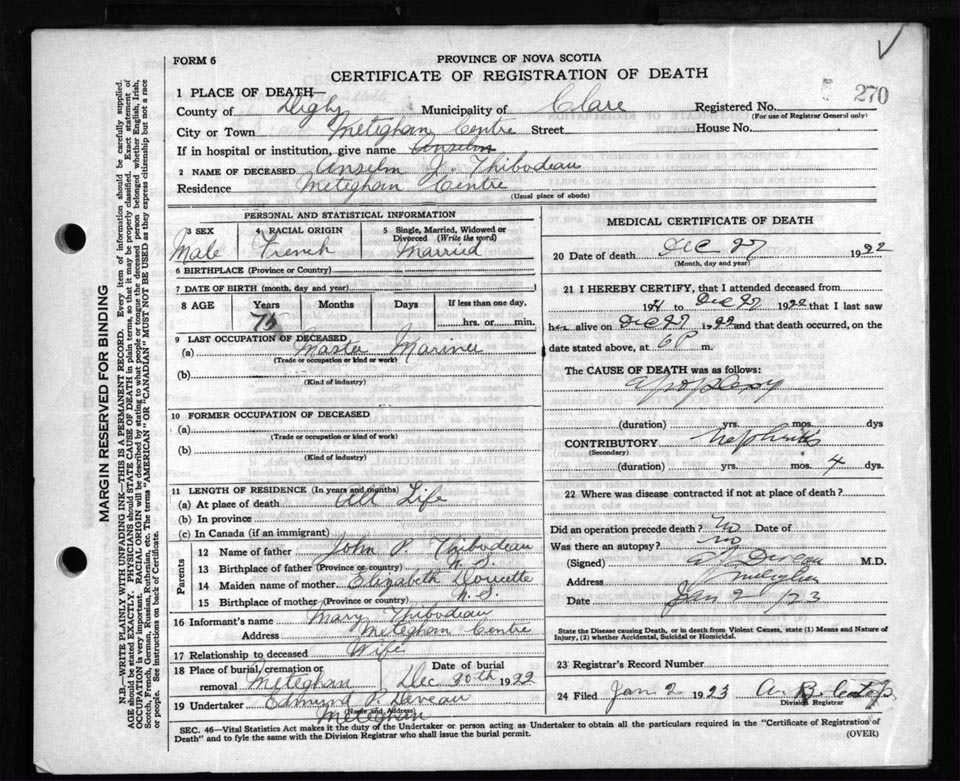 FORM 6
PROVINCE OF NOVA SCOTIA
CERTIFICATE OF REGISTRATION OF DEATH
270
1 PLACE OF DEATH—
County of Digby Municipality of Clare Registered No.
(For use of Registrar General only)
City or Town Meteghan Centre Street House No.
If in hospital or institution, give name Anselm
2 NAME OF DECEASED Anselm J. Thibodeau
Residence Meteghan Centre
(Usual place of abode)
PERSONAL AND STATISTICAL INFORMATION
3 SEX 4 RACIAL ORIGIN 5 Single, Married, Widowed or Divorced (Write the word)
Male French Married
6 BIRTHPLACE (Province or Country)
7 DATE OF BIRTH (month, day and year)
8 AGE Years Months Days If less than one day,
75 hrs. or min.
9 LAST OCCUPATION OF DECEASED
(a) Master Mariner
(Trade or occupation or kind of work)
(b)
(Kind of industry)
10 FORMER OCCUPATION OF DECEASED
(a)
(Trade or occupation or kind of work)
(b)
(Kind of industry)
11 LENGTH OF RESIDENCE (In years and months)
(a) At place of death All Life
(b) In province
(c) In Canada (if an immigrant)
Parents
12 Name of father John P. Thibodeau
13 Birthplace of father (Province or country) N. S.
14 Maiden name of mother Elizabeth Doucette
15 Birthplace of mother (Province or country) N. S.
16 Informant's name Mary Thibodeau
Address Meteghan Centre
17 Relationship to deceased Wife
18 Place of burial, cremation or removal Meteghan Date of burial Dec 30th 1922
19 Undertaker Edmund P. Deveau
(Name and Address)
Meteghan
MEDICAL CERTIFICATE OF DEATH
20 Date of death Dec 27 1922
(Month, day and year)
21 I HEREBY CERTIFY, that I attended deceased from
19 to Dec 27 1922 that I last saw
h alive on Dec 27 1922 and that death occurred, on
date stated above, at 6 P m.
The CAUSE OF DEATH was as follows:
Apoplexy
(duration) yrs. mos. dys
CONTRIBUTORY Nephritis
(Secondary)
(duration) yrs. mos. 4 dys.
22 Where was disease contracted if not at place of death?
Did an operation precede death? No Date of
Was there an autopsy? no
(Signed) Deveau M.D.
Address Meteghan
Date Jan 2 /23
State the Disease causing Death, or in death from Violent Causes, state (1) Means and Nature of
Injury, (2) whether Accidental, Suicidal or Homicidal.
23 Registrar's Record Number
24 Filed Jan 2 1923
Division Registrar
SEC. 46—Vital Statistics Act makes it the duty of the Undertaker or person acting as Undertaker to obtain all the particulars required in the "Certificate of Registration of
Death" and to fyle the same with the Division Registrar who shall issue the burial permit. (OVER)
MARGIN RESERVED FOR BINDING
N.B.—WRITE PLAINLY WITH UNFADING INK—THIS IS A PERMANENT RECORD. Every item of information should be carefully supplied.
AGE should be stated EXACTLY. PHYSICIANS should STATE CAUSE OF DEATH in plain terms, so that it may be properly classified. Exact statement of
OCCUPATION is very important. RACIAL ORIGIN will be described by stating to what people or tongue the deceased person belonged whether English, Irish,
Scotch, French, German, Russian, Ruthenian, etc. The terms "AMERICAN" OR "CANADIAN" MUST NOT BE USED as they express citizenship but not a race
or people. See instructions on back of Certificate.